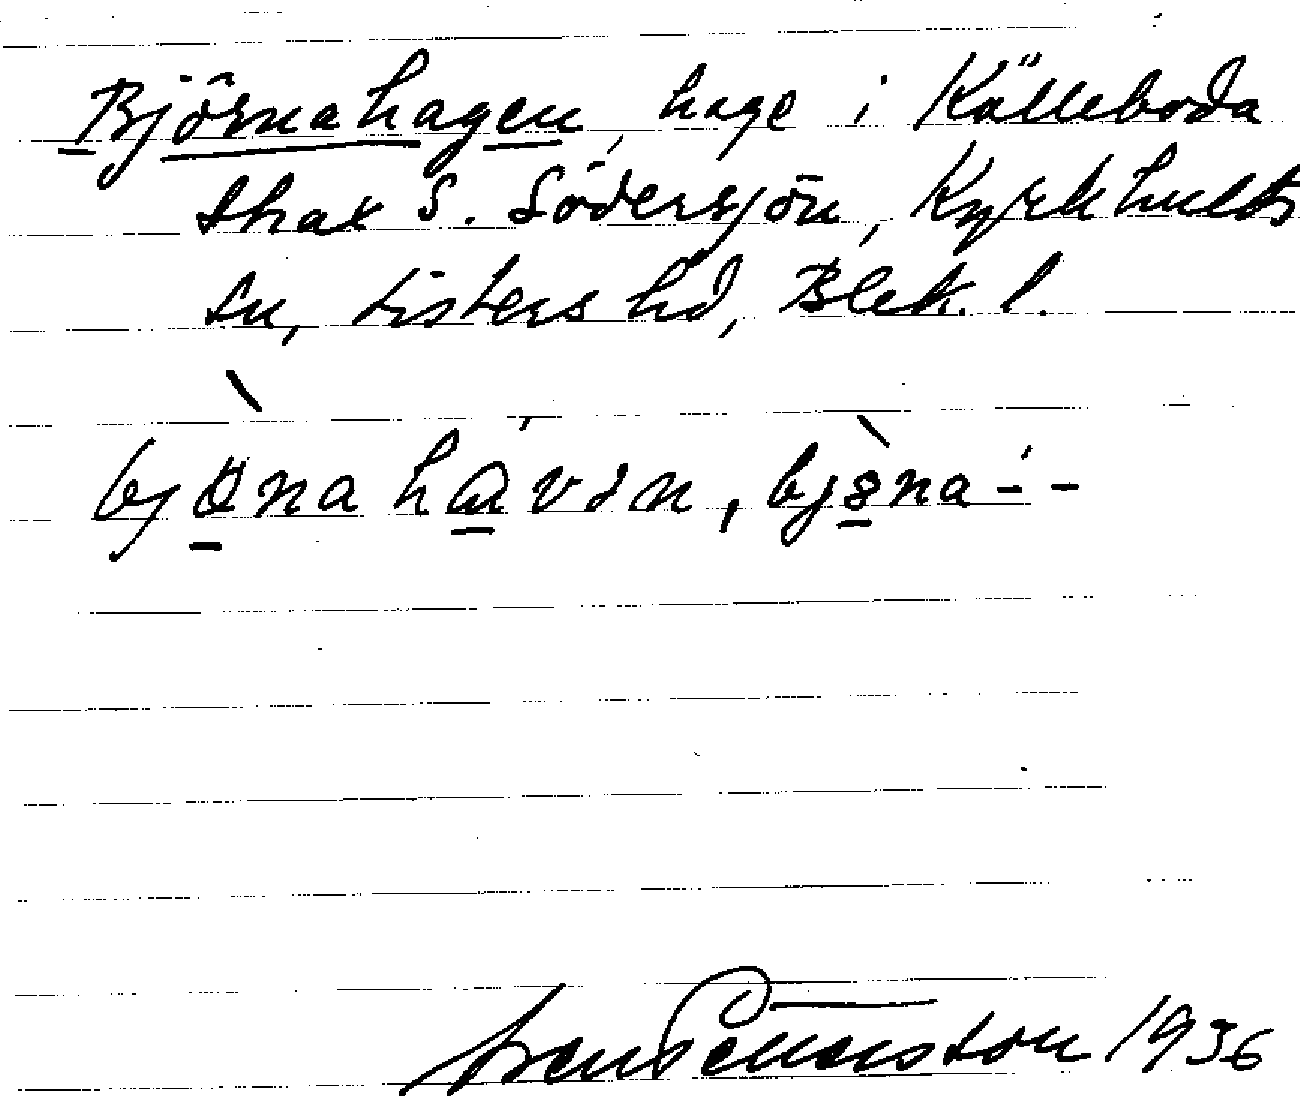 Björnahagen, hage i Källeboda
strax S. Södersjön, Kyrkhults
sn, Listers hd, Blek. l.
bjönahavən, bjøna--
1936